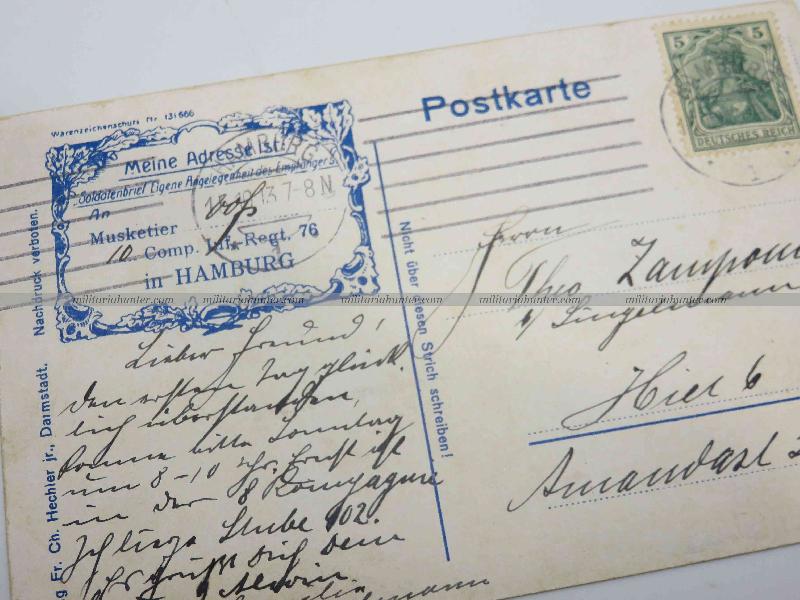 Warenzeichenschutz Nr. 131666
Meine Adresse ist:
Soldatenbrief Eigene Angelegenheit des Empfängers.
An
Musketier
10. Comp. Inf.-Regt. 76
in HAMBURG
HAMBURG
13 7-8 N
1
Postkarte
5 5
DEUTSCHES REICH
Nachdruck verboten.
g Fr. Ch. Hechler jr., Darmstadt.
Nicht über diesen Strich schreiben!
Herrn
Theo Zampon
Hier 6
Amandast
Lieber Freund!
den ersten Tag glück-
lich überstanden,
komme bitte Sonntag
um 8-10 Uhr. Ernst ist
in der 8 Kompagnie
Ich liege Stube 102.
Es grüßt Dich Dein
militariahunter.com militariahunter.com militariahunter.com militariahunter.com militariahunter.com